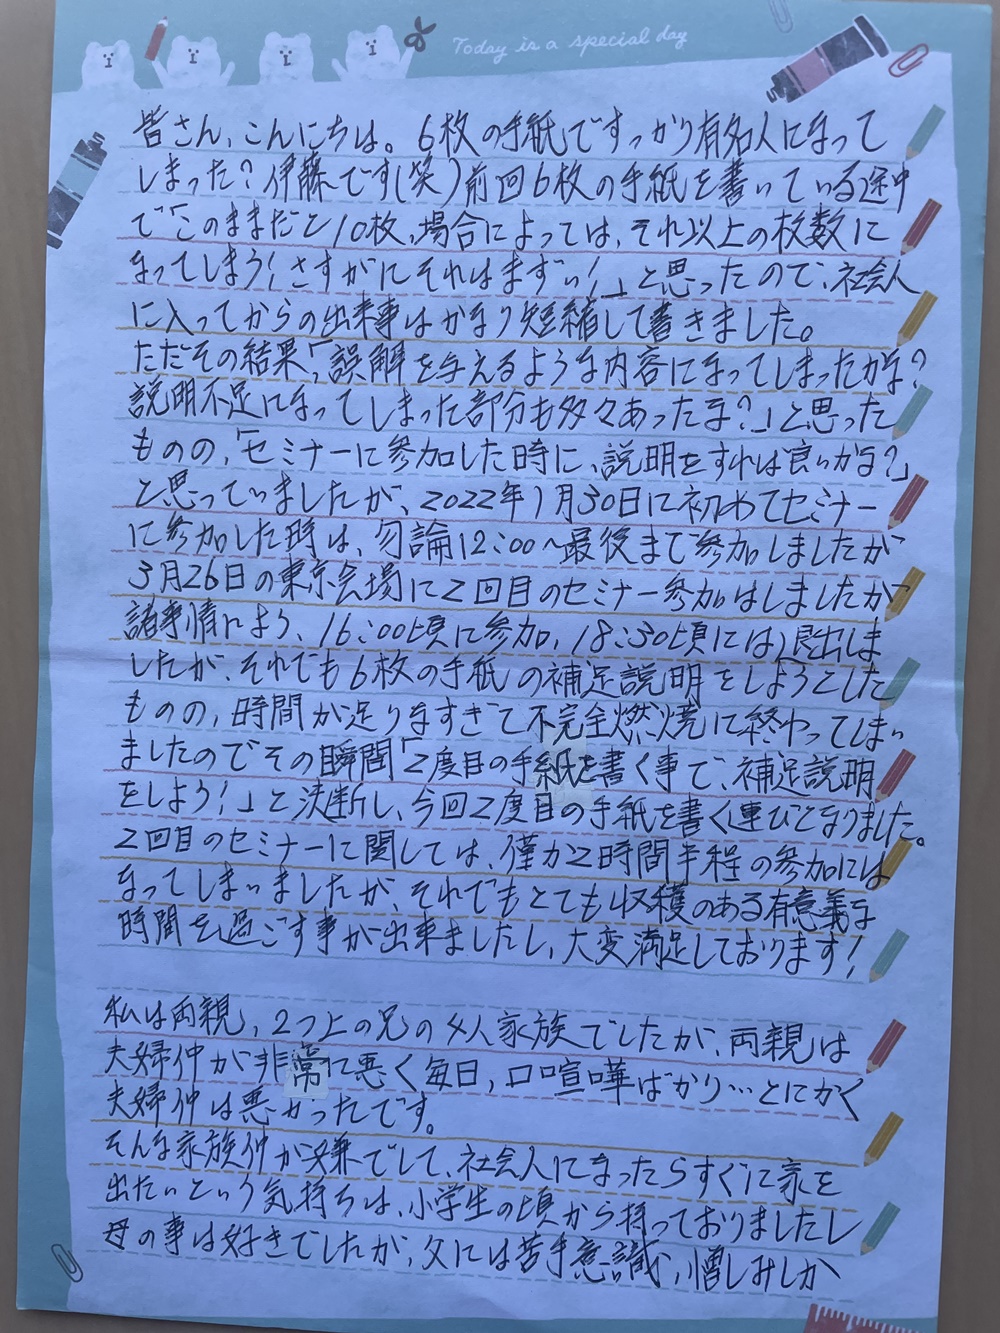 Today is a special day
皆さん、こんにちは。6枚の手紙ですっかり有名人になって
しまった?伊藤です(笑)前回6枚の手紙を書いている途中
で「このままだと10枚、場合によっては、それ以上の枚数に
なってしまう!さすがにそれはまずい!」と思ったので、社会人
に入ってからの出来事はかなり短縮して書きました。
ただその結果、「誤解を与えるような内容になってしまったかな?
説明不足になってしまった部分も多々あったな?」と思った
ものの、「セミナーに参加した時に、説明をすれば良いかな?」
と思っていましたが、2022年1月30日に初めてセミナー
に参加した時は、勿論12:00~最後まで参加しましたが
3月26日の東京会場に2回目のセミナー参加はしましたが
諸事情により、16:00頃に参加、18:30頃には退出しま
したが、それでも6枚の手紙の補足説明をしようとした
ものの、時間が足りなすぎて不完全燃焼に終わってしまい
ましたのでその瞬間「2度目の手紙を書く事で、補足説明
をしよう!」と決断し、今回2度目の手紙を書く運びとなりました。
2回目のセミナーに関しては、僅か2時間半程の参加には
なってしまいましたが、それでもとても収穫のある有意義な
時間を過ごす事が出来ましたし、大変満足しております!
私は両親、2つ上の兄の4人家族でしたが、両親は
夫婦仲が非常に悪く毎日、口喧嘩ばかり…とにかく
夫婦仲は悪かったです。
そんな家族仲が嫌でして、社会人になったらすぐに家を
出たいという気持ちは、小学生の頃から持っておりましたし
母の事は好きでしたが、父には苦手意識、憎しみしか